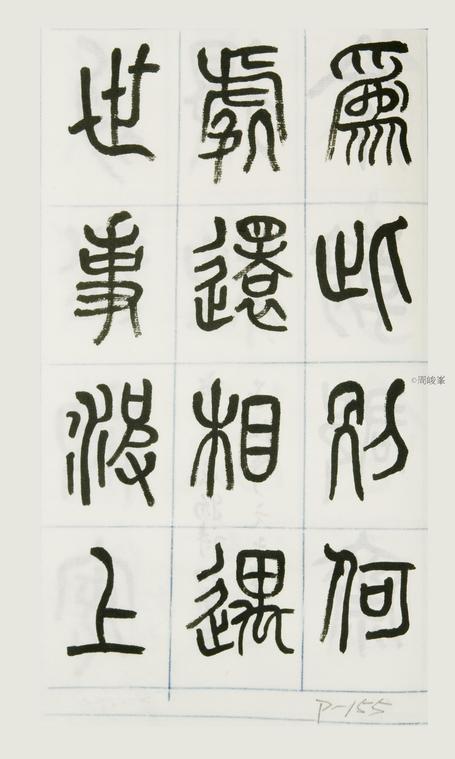 爲此別何
處還相遇
世事波上
©周峻峯
P-155